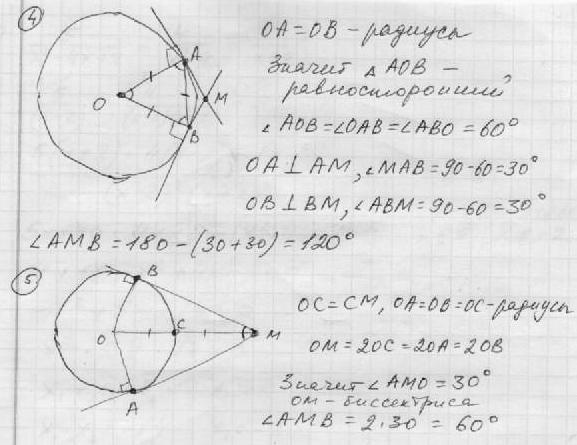 4
OA = OB – радиусы
Значит △ AOB –
равносторонний
∠AOB = ∠OAB = ∠ABO = 60°
OA ⊥ AM, ∠MAB = 90-60 = 30°
OB ⊥ BM, ∠ABM = 90-60 = 30°
∠AMB = 180 - (30+30) = 120°
A
O
M
B
5
B
O
C
M
A
OC = CM, OA = OB = OC - радиусы
OM = 2OC = 2OA = 2OB
Значит ∠AMO = 30°
OM - биссектриса
∠AMB = 2·30 = 60°